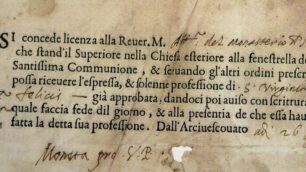 SI concede licenza alla Reuer. M. del monasterio
che stand'il Superiore nella Chiesa esteriore alla fenestrella de
Santissima Communione, & seruando gl'altri ordini prese
possa riceuere l'espressa, & solenne professione di S.
felicis — già approbata, dandoci poi auiso con scrittur
quale faccia fede dil giorno, & alla presentia de che essa hau
fatta la detta sua professione. Dall'Arciuescouato ad 26
pro S. P.